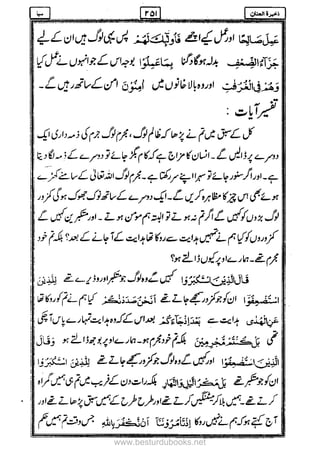 ذخیرۃ الجنان ۳۵۱ سبا
عَمِلَ صَالِحًا اور عمل کیے اچھے فَأُولٰٓئِكَ لَهُمْ پس یہی لوگ ہیں ان کے لیے
جَزَآءُ الضِّعْفِ بدلہ ہوگا دگنا بِمَا عَمِلُوْا بوجہ اس کے جو انہوں نے عمل کیا
وَهُمْ فِى الْغُرُفٰتِ اور وہ بالا خانوں میں اٰمِنُوْنَ امن کے ساتھ رہیں گے۔
تفسیر آیات :
کل کے سبق میں تم نے پڑھا کہ ظالم لوگ، مجرم لوگ جرم کی ذمہ داری ایک
دوسرے پر ڈالیں گے۔ انسان کا مزاج ہے کہ کام بگڑ جائے تو دوسرے کے ذمہ لگا دیتا
ہے۔ اور اگر سنور جائے تو سہرا اپنے سر رکھتا ہے۔ مجرم لوگ اللہ تعالیٰ کے سامنے کھڑے
ہوئے بھی اس چیز کا مظاہرہ کریں گے۔ ایک دوسرے کے ساتھ لوگ جھگڑیں گے کمزور
لوگ بڑوں کو کہیں گے اگر تم نہ ہوتے تو البتہ ہم مومن ہوتے۔ اور متکبرین کہیں گے
کمزوروں کو کیا ہم نے تمہیں ہدایت سے روکا تھا ہدایت کے آ جانے کے بعد؟ بلکہ تم خود
مجرم تھے۔ ہمارے اوپر کیوں ڈالتے ہو؟
قَالَ الَّذِيْنَ اسْتَكْبَرُوْا کہیں گے وہ لوگ جو متکبر اور وڈیرے تھے لِلَّذِيْنَ
اسْتُضْعِفُوْٓا ان کو جو کمزور سمجھے جاتے تھے اَنَحْنُ صَدَدْنٰكُمْ کیا ہم نے تم کو روکا تھا
عَنِ الْهُدٰى ہدایت سے بَعْدَ اِذْ جَآءَكُمْ بعد اس کے کہ وہ ہدایت تمہارے پاس آ چکی
تھی بَلْ كُنْتُمْ مُّجْرِمِيْنَ بلکہ تم خود مجرم ہو۔ ہمارے اوپر بوجھ ڈالتے ہو وَقَالَ
الَّذِيْنَ اسْتُضْعِفُوْا اور کہیں گے وہ لوگ جو کمزور سمجھے جاتے تھے لِلَّذِيْنَ اسْتَكْبَرُوْا
ان کو جو متکبر تھے بَلْ مَكْرُ الَّيْلِ وَالنَّهَارِ بلکہ رات دن کے فریب نے تم ہی ہمیں گمراہ
کرتے تھے۔ بلا میٹنگیں کرتے تھے اور طرح طرح کے ہمیں سبق پڑھاتے تھے اور
آج کہتے ہو کہ ہم نے نہیں روکا اِذْ تَاْمُرُوْنَنَآ اَنْ نَّكْفُرَ بِاللّٰهِ جس وقت تم ہمیں حکم
www.besturdubooks.net